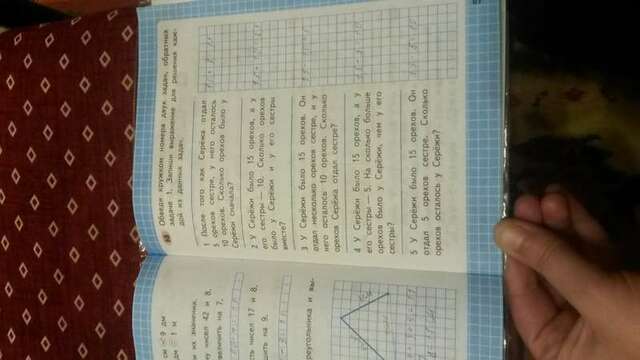 см < 9 дм
дм = 1 м
и их значения.
му чисел 42 и 8,
величить на 7,
сть чисел 17 и 8,
шить на 9.
реугольника и вы-
Обведи кружком номера двух задач, обратных
задаче 1. Запиши выражение для решения каж-
дой из данных задач.
1 После того как Серёжа отдал
5 орехов сестре, у него осталось
10 орехов. Сколько орехов было у
Серёжи сначала?
2 У Серёжи было 15 орехов, а у
его сестры — 10. Сколько орехов
было у Серёжи и у его сестры
вместе?
3 У Серёжи было 15 орехов. Он
отдал несколько орехов сестре, и у
него осталось 10 орехов. Сколько
орехов Серёжа отдал сестре?
4 У Серёжи было 15 орехов, а у
его сестры — 5. На сколько больше
орехов было у Серёжи, чем у его
сестры?
5 У Серёжи было 15 орехов. Он
отдал 5 орехов сестре. Сколько
орехов осталось у Серёжи?